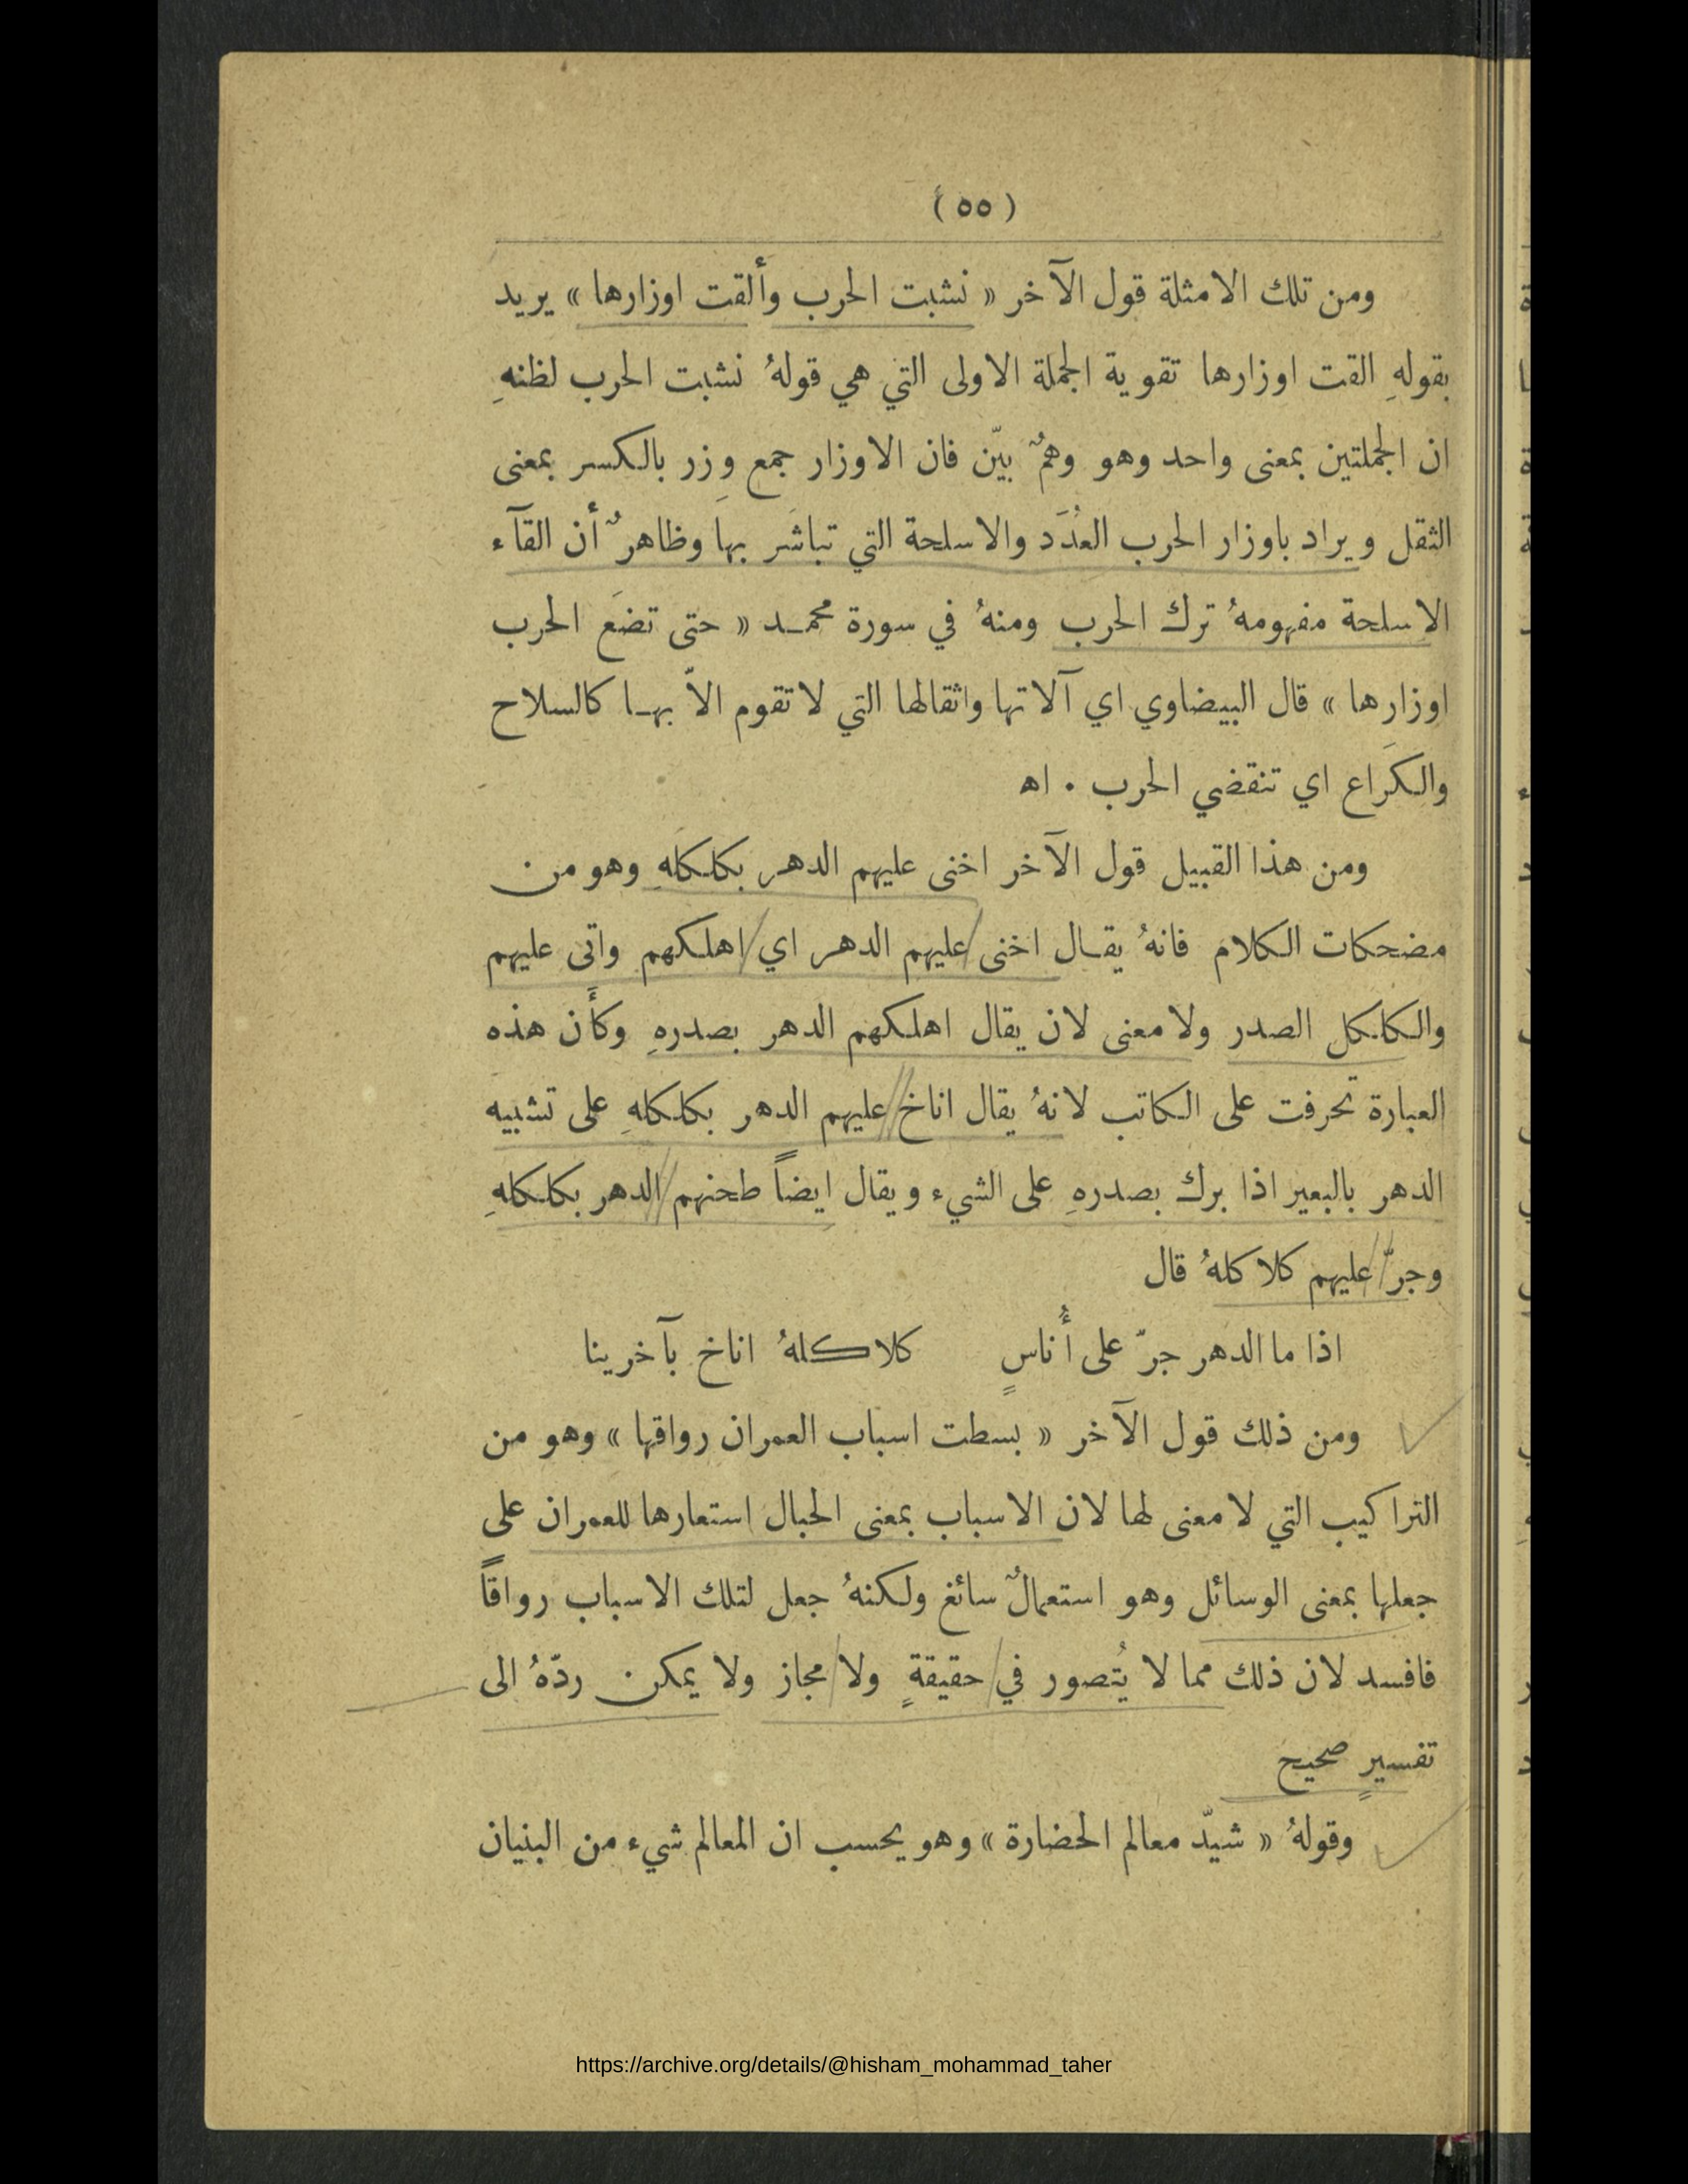 ( ٥٥ )
ومن تلك الامثلة قول الآخر « نشبت الحرب وألقت اوزارها » يريد
بقولهِ القت اوزارها تقوية الجملة الاولى التي هي قولهُ نشبت الحرب لظنهِ
ان الجملتين بمعنى واحد وهو وهمٌ بيّن فان الاوزار جمع وِزر بالكسر بمعنى
الثقل ويراد باوزار الحرب العُدَد والاسلحة التي تباشَر بها وظاهرٌ أن القآء
الاسلحة مفهومهُ ترك الحرب ومنهُ في سورة محمد « حتى تضَع الحرب
اوزارها » قال البيضاوي اي آلاتها واثقالها التي لا تقوم الاّ بها كالسلاح
والكَراع اي تنقضي الحرب ٠ اه
ومن هذا القبيل قول الآخر اخنى عليهم الدهر بكلكلهِ وهو من
مضحكات الكلام فانهُ يقال اخنى عليهم الدهر اي اهلكهم واتى عليهم
والكلكل الصدر ولا معنى لان يقال اهلكهم الدهر بصدرهِ وكأَن هذه
العبارة تحرفت على الكاتب لانهُ يقال اناخ عليهم الدهر بكلكلهِ على تشبيه
الدهر بالبعير اذا برك بصدرهِ على الشيء ويقال ايضاً طحنهم الدهر بكلكلهِ
وجرّ عليهم كلاكلهُ قال
اذا ما الدهر جرّ على أُناسٍ كلاكلهُ اناخ بآخرينا
ومن ذلك قول الآخر « بسطت اسباب العمران رواقها » وهو من
التراكيب التي لا معنى لها لان الاسباب بمعنى الحبال استعارها للعمران على
جعلها بمعنى الوسائل وهو استعمالٌ سائغ ولكنهُ جعل لتلك الاسباب رواقاً
فافسد لان ذلك مما لا يُتصور في حقيقةٍ ولا مجاز ولا يمكن ردّهُ الى
تفسيرٍ صحيح
وقولهُ « شيّد معالم الحضارة » وهو يحسب ان المعالم شيء من البنيان
https://archive.org/details/@hisham_mohammad_taher